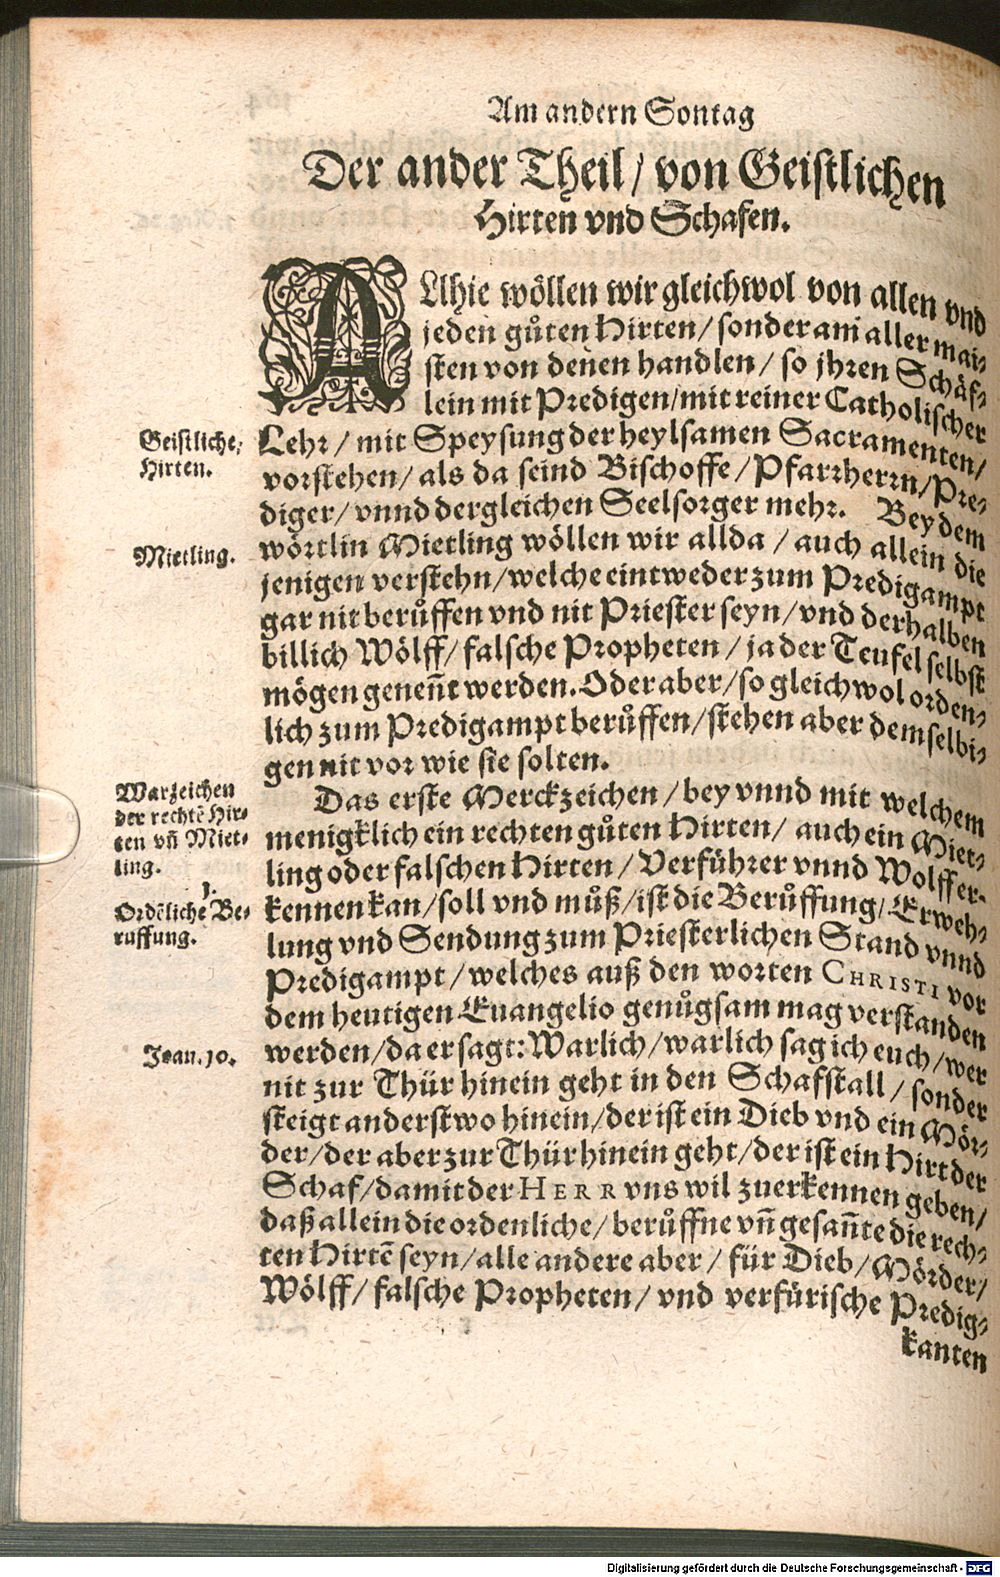 Am andern Sontag
Der ander Theil / von Geistlichen
Hirten vnd Schafen.
ALlhie wöllen wir gleichwol von allen vnd
jeden gůten Hirten / sonder am aller mai-
sten von denen handlen / so jhren Schäf-
lein mit Predigen / mit reiner Catholischer
Geistliche
Hirten.
Lehr / mit Speysung der heylsamen Sacramenten /
vorstehen / als da seind Bischoffe / Pfarrherrn / Pre-
diger / vnnd dergleichen Seelsorger mehr. Bey dem
Mietling.
wörtlin Mietling wöllen wir allda / auch allein die
jenigen verstehn / welche eintweder zum Predigampt
gar nit berůffen vnd nit Priester seyn / vnd derhalben
billich Wölff / falsche Propheten / ja der Teufel selbst
mögen geneñt werden. Oder aber / so gleichwol orden-
lich zum Predigampt berůffen / stehen aber demselbi-
gen nit vor wie sie solten.
Warzeichen
der rechtẽ Hir-
ten vñ Miet-
ling.
1.
Ordẽliche Be-
ruffung.
Das erste Merckzeichen / bey vnnd mit welchem
menigklich ein rechten gůten Hirten / auch ein Miet-
ling oder falschen Hirten / Verführer vnnd Wolff er-
kennen kan / soll vnd můß / ist die Berůffung / Erweh-
lung vnd Sendung zum Priesterlichen Stand vnnd
Predigampt / welches auß den worten CHRISTI vor
dem heutigen Euangelio genůgsam mag verstanden
Joan. 10.
werden / da er sagt: Warlich / warlich sag ich euch / wer
nit zur Thür hinein geht in den Schafstall / sonder
steigt anderstwo hinein / der ist ein Dieb vnd ein Mör-
der / der aber zur Thür hinein geht / der ist ein Hirt der
Schaf / damit der HERR vns wil zuerkennen geben /
daß allein die ordenliche / berůffne vñ gesañte die rech-
ten Hirtẽ seyn / alle andere aber / für Dieb / Mörder /
Wölff / falsche Propheten / vnd verfürische Predig-
kanten
Digitalisierung gefördert durch die Deutsche Forschungsgemeinschaft - DFG